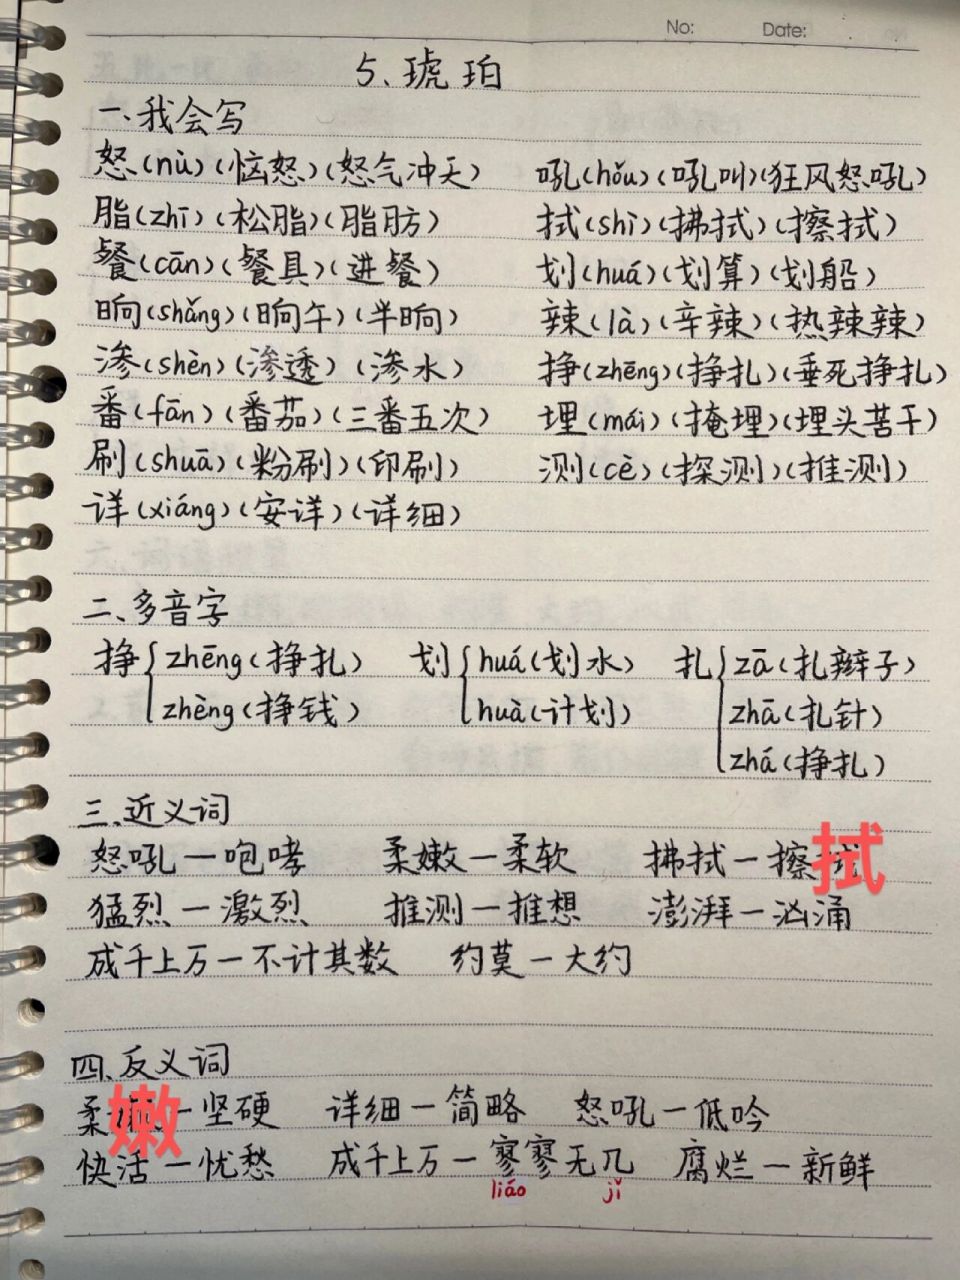 No: Date:
5、琥珀
一、我会写
怒(nù)(恼怒)(怒气冲天) 吼(hǒu)(吼叫)(狂风怒吼)
脂(zhī)(松脂)(脂肪) 拭(shì)(拂拭)(擦拭)
餐(cān)(餐具)(进餐) 划(huá)(划算)(划船)
晌(shǎng)(晌午)(半晌) 辣(là)(辛辣)(热辣辣)
渗(shèn)(渗透)(渗水) 挣(zhēng)(挣扎)(垂死挣扎)
番(fān)(番茄)(三番五次) 埋(mái)(掩埋)(埋头苦干)
刷(shuā)(粉刷)(印刷) 测(cè)(探测)(推测)
详(xiáng)(安详)(详细)
二、多音字
挣 zhēng(挣扎) 划 huá(划水) 扎 zā(扎辫子)
zhèng(挣钱) huà(计划) zhā(扎针)
zhá(挣扎)
三、近义词
怒吼—咆哮 柔嫩—柔软 拂拭—擦拭
猛烈—激烈 推测—推想 澎湃—汹涌
成千上万—不计其数 约莫—大约
四、反义词
柔嫩—坚硬 详细—简略 怒吼—低吟
快活—忧愁 成千上万—寥寥无几 腐烂—新鲜
liáo jǐ